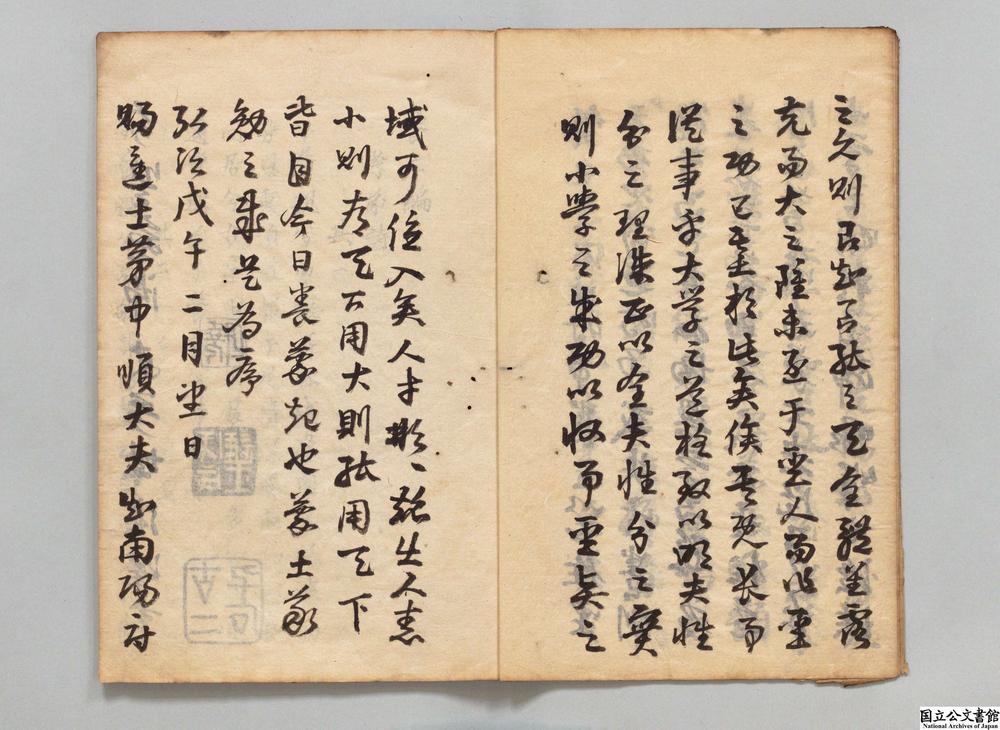 之久則良知良能之天全體呈露
充而大之雖未至于聖人而作聖
之功已基於此矣俟其既長而
從事乎大學之道格致以明夫性
分之理誠正以全夫性分之實
則小學之成功以收而聖矣之
域可位入矣人才彬〻輩出不患
小則為天下用大則能用天下
皆自今日養蒙起也蒙士義
勉之哉是為序
弘治戊午二月望日
賜進士第中順大夫知南陽府
国立公文書館
National Archives of Japan